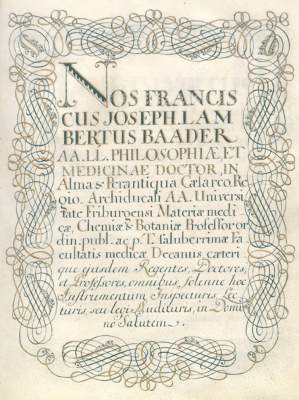 NOS FRANCIS
CUS JOSEPH. LAM
BERTUS BAADER
AA. LL. PHILOSOPHIÆ, ET
MEDICINAE DOCTOR, IN
Alma & Perantiqua Cæsareo, Re
gio, Archiducali A.A. Universi
tate Friburgensi Materiæ medi
cæ, Chemiæ & Botaniæ Professor or
din. publ. ac p. T. saluberrimæ Fa
cultatis medicæ Decanus, cæteri
que ejusdem Regentes, Doctores,
et Professores, omnibus, solenne hoc
Instrumentum Inspecturis, Lec
turis, seu legi Audituris, in Domi
no Salutem.